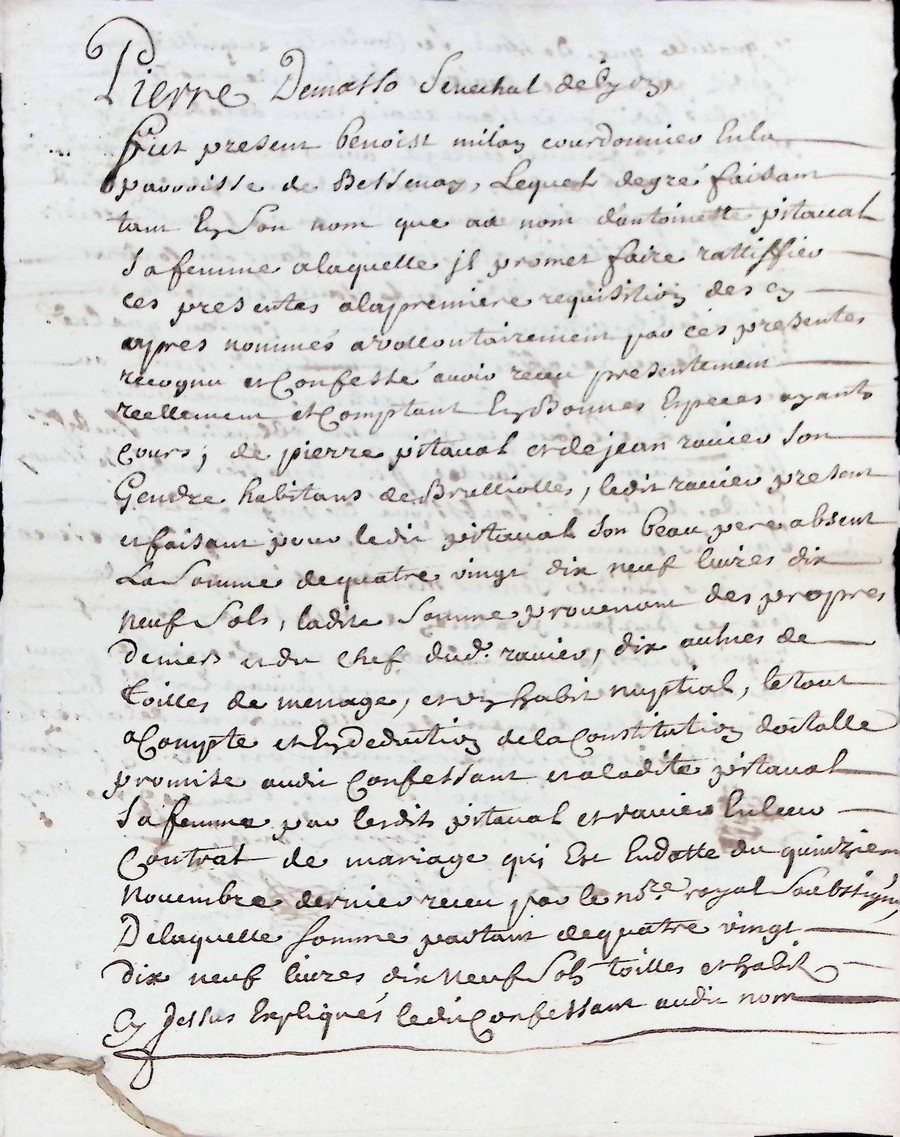 Pierre Demasso Senechal de Lyon
fut present benoist milon courdonnier En la
parroisse de Bessenay, Lequel de gré faisant
tant En Son nom que au nom d'antoinette pitaval
Sa femme a laquelle jl promet faire rattiffier
ces presentes a la premiere requisition des cy
apres nommés a vollontairement par ces presentes
recognu et Confessé avoir receu presentement
reellement et Comptant En Bonnes Especes ayants
Cours; de pierre pitaval et de jean ravier Son
Gendre habitans de Brulliolles, ledit ravier present
et faisant pour ledit pitaval Son beau pere absent
La Somme de quatre vingt dix neuf livres dix
neuf Sols, ladite Somme provenant des propres
Deniers et du Chef dud. ravier, dix aulnes de
toilles de menage, et un habit nuptial, le tout
a Compte et En deduction de la Constitution dotalle
promise audit Confessant et a ladite pitaval
Sa femme par lesdits pitaval et ravier En leur
Contrat de mariage qui Est En datte du quinzie
novembre dernier receu par le nore royal Soubsigné,
De laquelle Somme partant de quatre vingt
dix neuf livres dix neuf Sols toilles et habit
Cy dessus Expliqués ledit Confessant audit nom